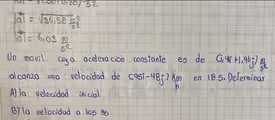 |a⃗| = √36,38 m²/s⁴
|a⃗| = 6,03 m/s²
Un movil cuya aceleracion constante es de m/s²
alcanza una velocidad de (95i-48j) km/h en 18 s. Determinar
A) la velocidad inicial
B) la velocidad a los